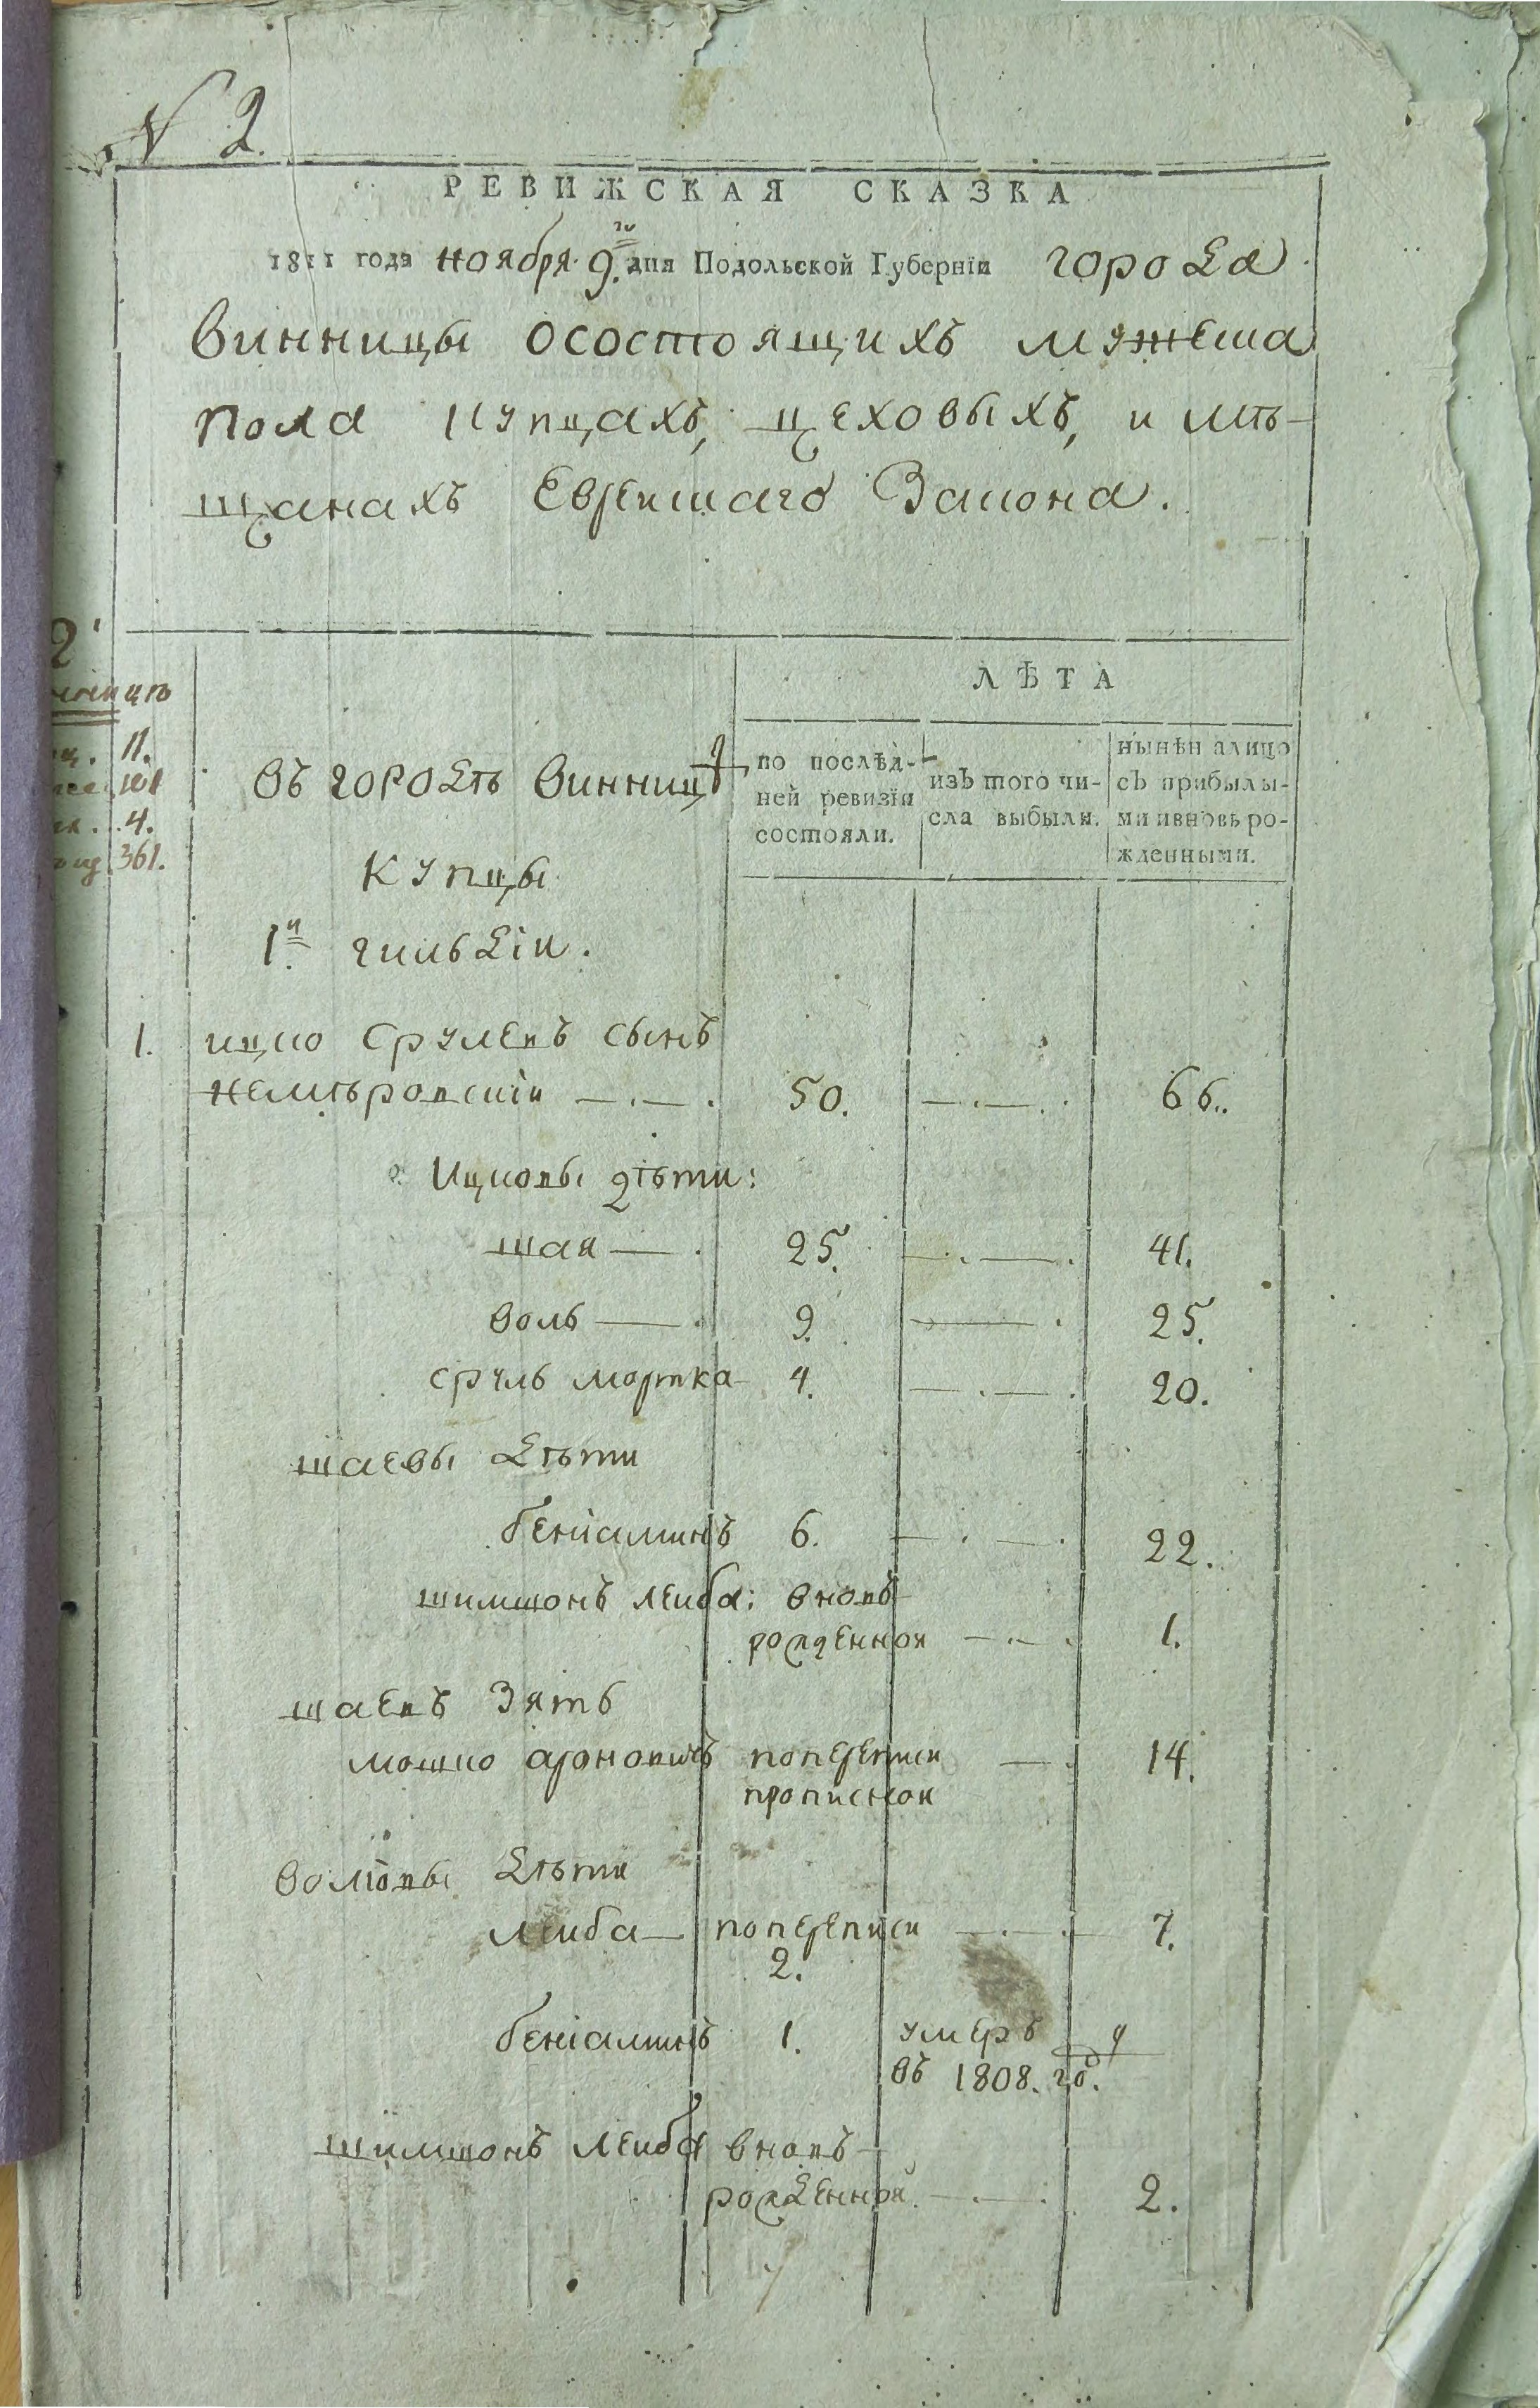 N 2.
РЕВИЖСКАЯ СКАЗКА
1811 года ноября 9.го дня Подольской Губернїи города
Винницы осостоящихъ мужеска
пола купцахъ, цеховыхъ, и мѣ-
щанахъ Еврейскаго Закона.
ЛѢТА
въ городѣ Винницѣ
по послѣд-
ней ревизїи
состояли.
изъ того чи-
сла выбыли.
нынѣ на лицо
съ прибылы-
ми и вновь ро-
жденными.
2
11.
101
4.
361.
Купцы
1й гильдіи.
1. ицко Срулевъ сынъ
Немѣровскій — . — . 50. — . — . 66.
Ицковы дѣти:
шая — . 25. — . — . 41.
волъ — . 9. — . 25.
сруль мортка 4. — . — . 20.
шаевы дѣти
беніаминъ 6. — . — . 22.
шимшонъ лейба: вновь
рожденной — . — . 1.
шаевъ зять
мошко ароновичъ попереписи — . 14.
прописной
волковы дѣти
лейба — попереписи — . — . 7.
2.
беніаминъ 1. умеръ
въ 1808. год.
шимшонъ лейба вновь
рожденной — . — . 2.